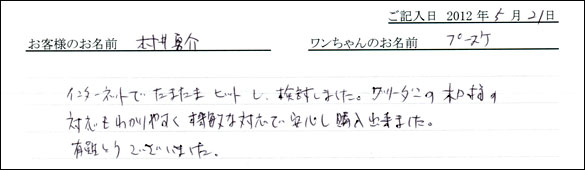 ご記入日 2012 年 5 月 21 日
お客様のお名前 村井勇介 ワンちゃんのお名前 プースケ
インターネットでたまたま ヒットし、検討しました。ブリーダーの 様の
対応もわかりやすく 対応で安心し購入出来ました。
有難とうございました。